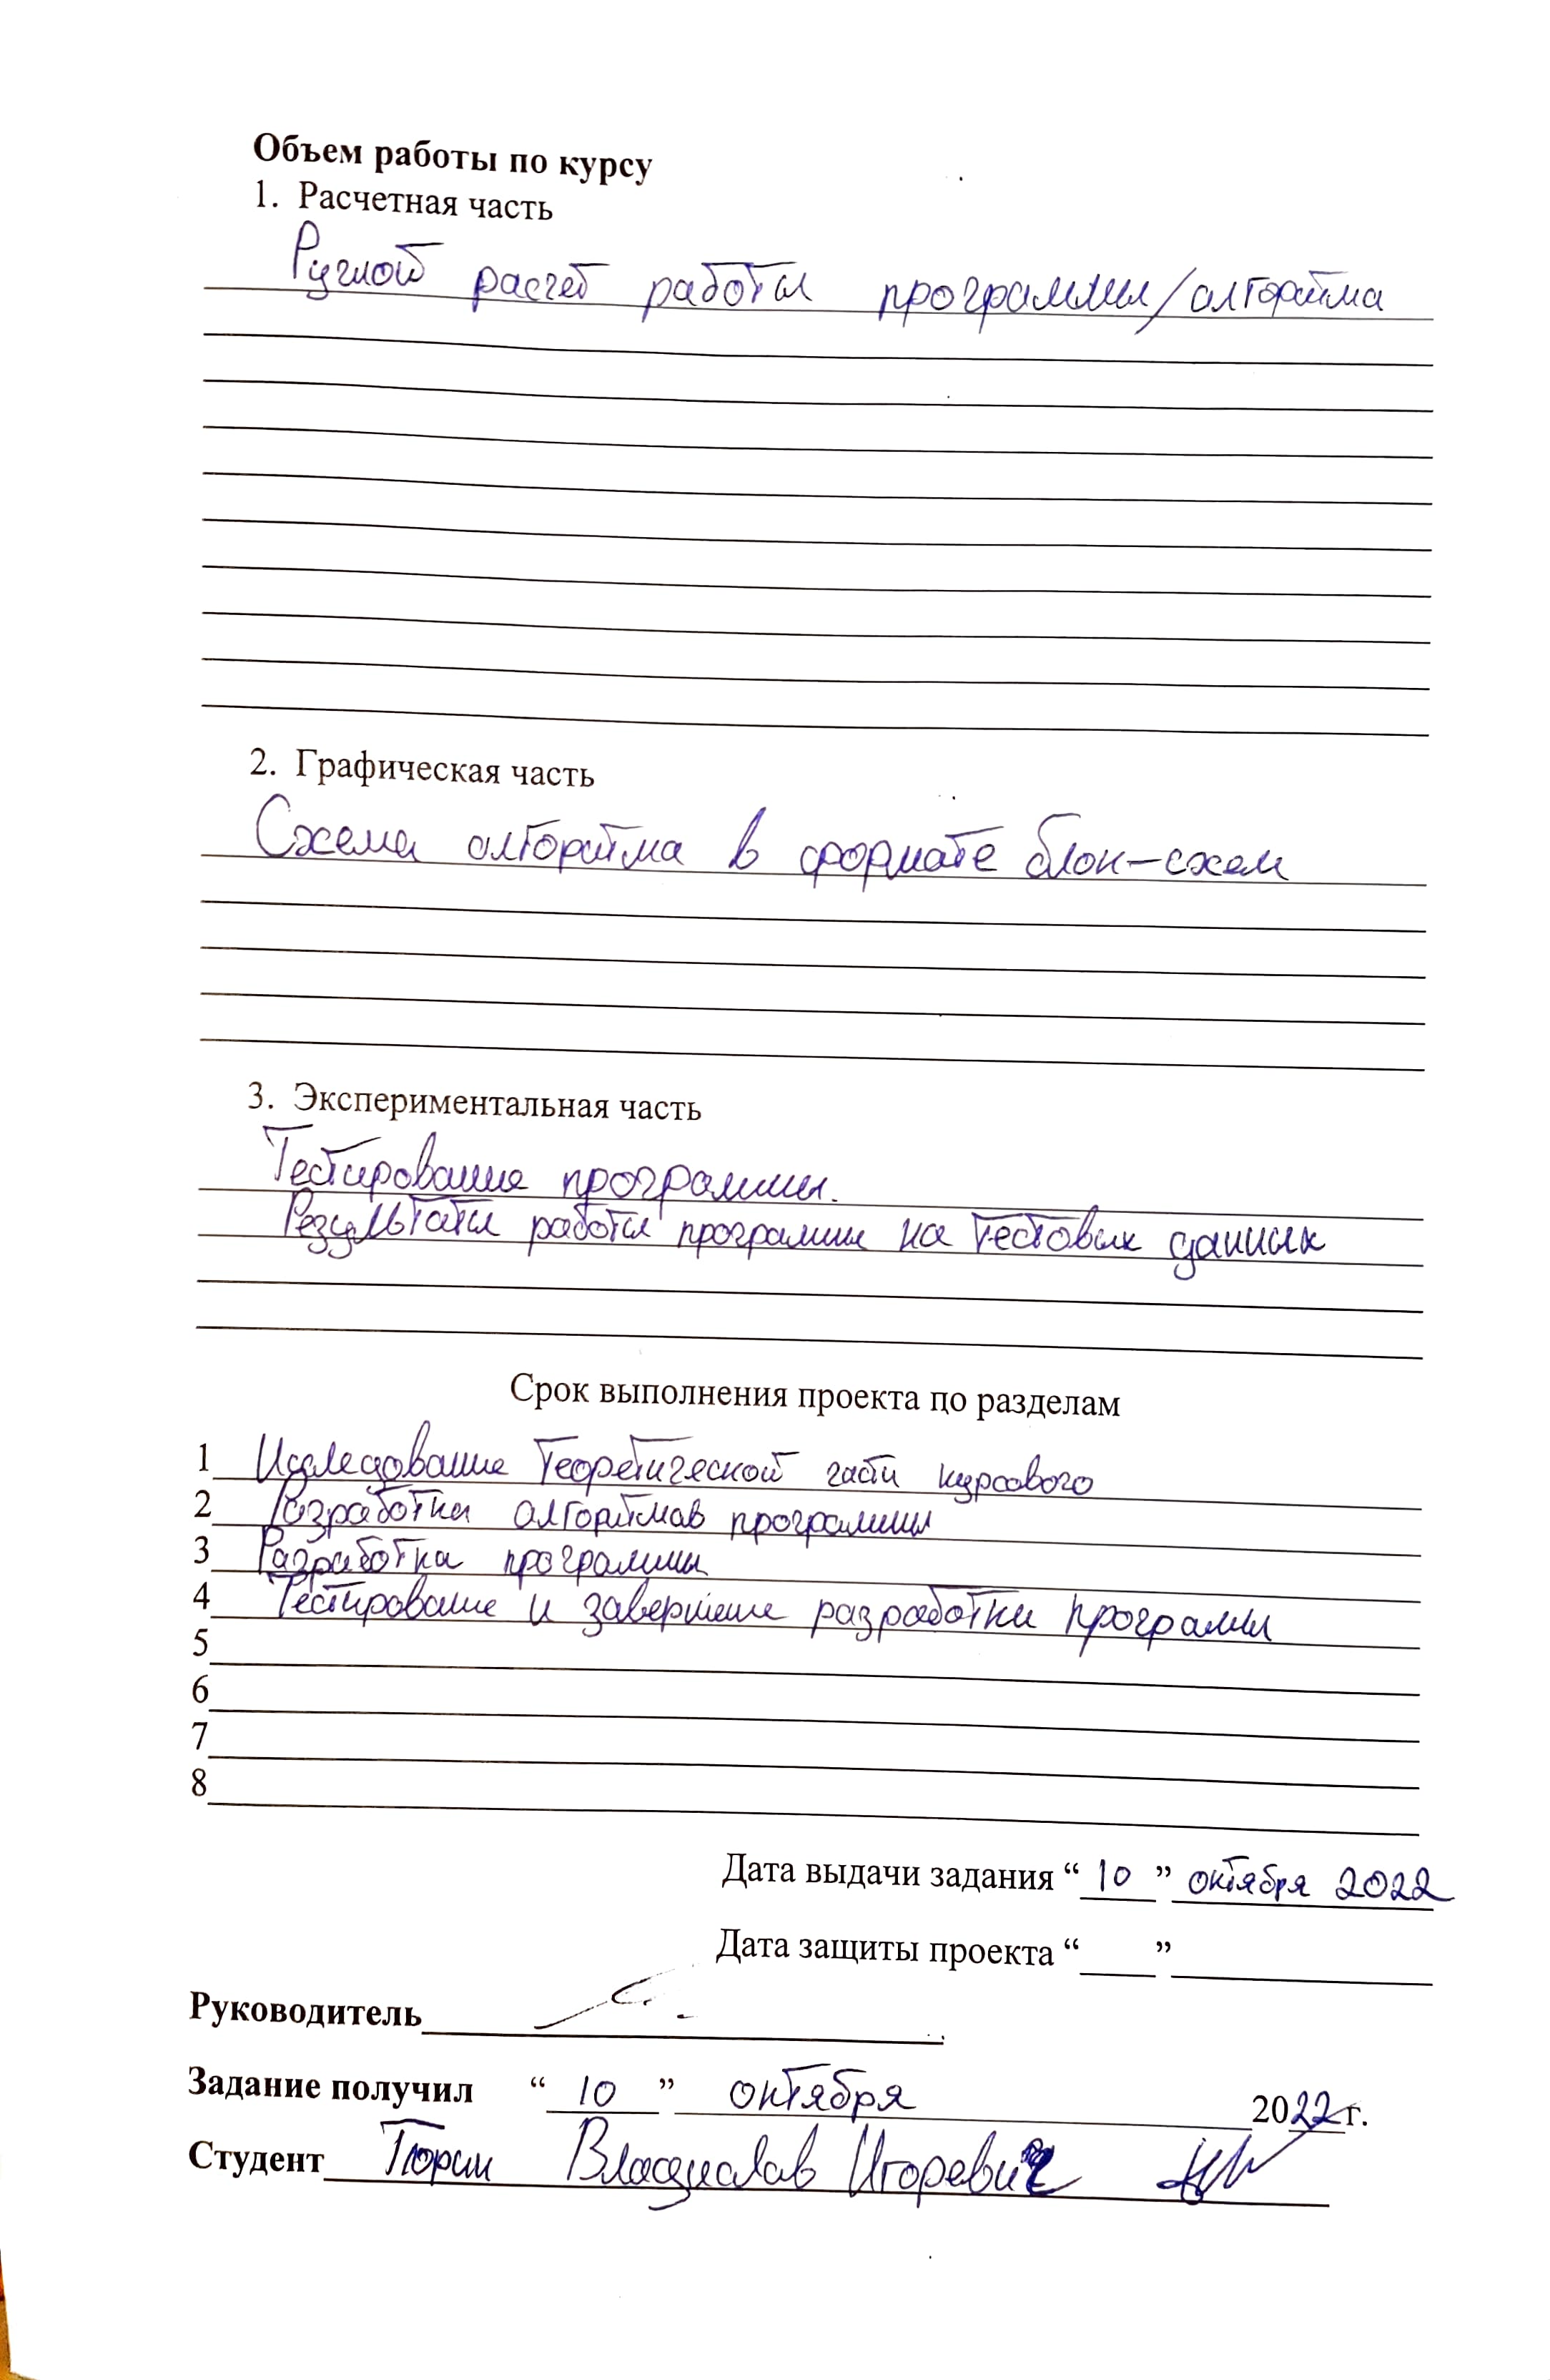 Объем работы по курсу
1. Расчетная часть
Ручной расчет работы программы/алгоритма
2. Графическая часть
Схема алгоритма в формате блок-схем
3. Экспериментальная часть
Тестирование программы.
Результаты работы программы на тестовых данных
Срок выполнения проекта по разделам
1 Исследование теоретической части курсового
2 Разработка алгоритмов программы
3 Разработка программы
4 Тестирование и завершение разработки программы
5
6
7
8
Дата выдачи задания “10” октября 2022
Дата защиты проекта “ ”
Руководитель
Задание получил “10” октября 2022г.
Студент Владислав Игоревич